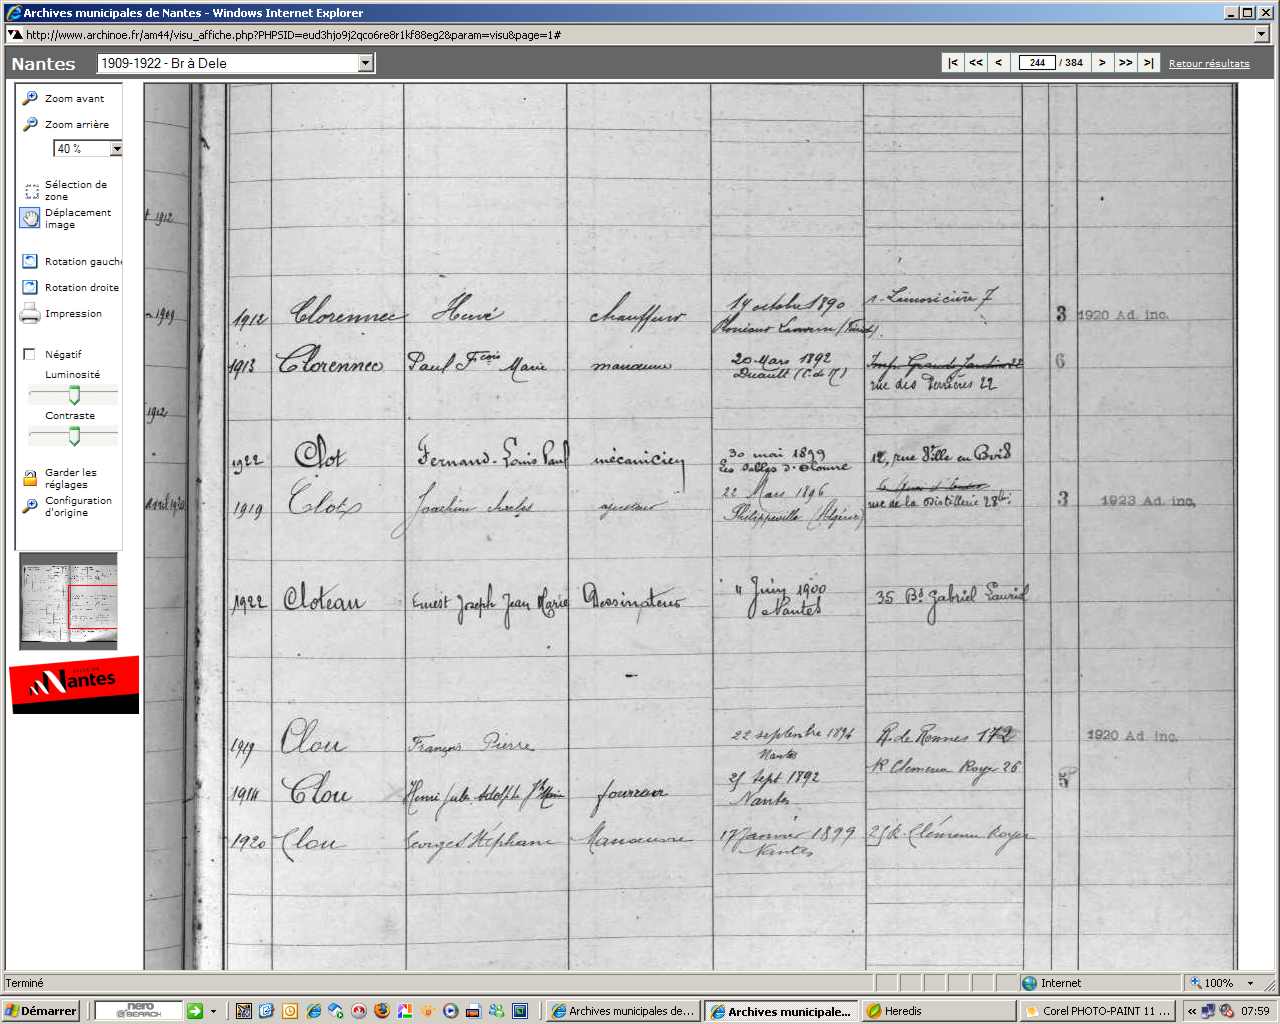 Archives municipales de Nantes - Windows Internet Explorer
http://www.archinoe.fr/am44/visu_affiche.php?PHPSID=eud3hjo9j2qco6re8r1kf88eg2&param=visu&page=1#
Nantes 1909-1922 - Br à Dele |< << < 244 / 384 > >> >| Retour résultats
Zoom avant
Zoom arrière
40 %
Sélection de
zone
Déplacement
image
Rotation gauche
Rotation droite
Impression
Négatif
Luminosité
Contraste
Garder les
réglages
Configuration
d'origine
Nantes
1912
1909
1912
avril 1920
14 octobre 1890 r. Lamoricière 7
1912 Clorennec Hervé chauffeur 3 1920 Ad. inc.
20 Mars 1892 Imp. Grands Jardins 22
1913 Clorennec Paul Fçois Marie manœuvre 6
Duault (C. du N) rue des Perrières 22
30 mai 1899
1922 Clot Fernand-Louis Paul mécanicien 12, rue Ville en Bois
Les Sables d'Olonne
22 Mars 1896
1919 Clot Joachim Charles ajusteur rue de la Distillerie 28bis 3 1923 Ad. inc.
Philippeville (Algérie)
11 Juin 1900
1922 Cloteau Ernest Joseph Jean Marie Dessinateur 35 Bd Gabriel Lauriol
Nantes
22 septembre 1894 R. de Rennes 172 1920 Ad inc.
1919 Clou François Pierre
Nantes
25 Sept 1892 R Clémence Royer 26
1914 Clou Henri Jules Adolphe fourreur 5
Nantes
17 Janvier 1899 25 R. Clémence Royer
1920 Clou Georges Stéphane Manœuvre
Nantes
Terminé Internet 100%
Démarrer nero SEARCH Archives municipales de... Archives municipale... Heredis Corel PHOTO-PAINT 11 ... 07:59